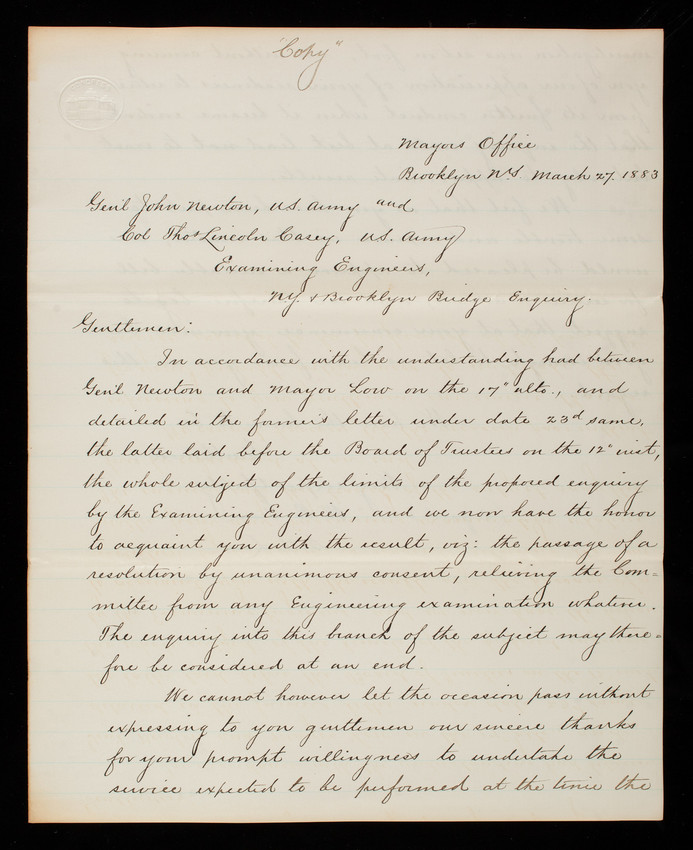 "Copy"
Mayors Office
Brooklyn N.Y. March 27. 1883
Gen'l John Newton, U.S. Army and
Col Thos Lincoln Casey, U.S. Army
Examining Engineers,
N.Y. & Brooklyn Bridge Enquiry.
Gentlemen:
In accordance with the understanding had between
Gen'l Newton and Mayor Low on the 17" ulto., and
detailed in the former's letter under date 23d same,
the latter laid before the Board of Trustees on the 12" inst,
the whole subject of the limits of the proposed enquiry
by the Examining Engineers, and we now have the honor
to acquaint you with the result, viz: the passage of a
resolution by unanimous consent, relieving the Com=
mittee from any Engineering examination whatever.
The enquiry into this branch of the subject may there=
fore be considered at an end.
We cannot however let the occasion pass without
expressing to you gentlemen our sincere thanks
for your prompt willingness to undertake the
service expected to be performed at the time the